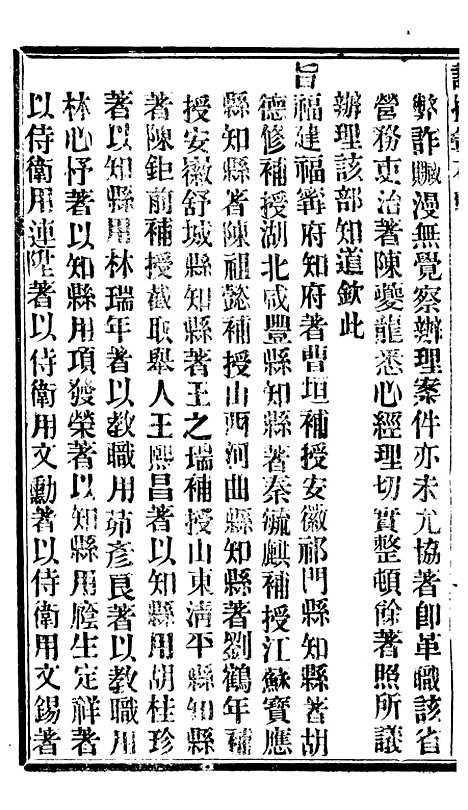 弊詐贓漫無覺察辦理案件亦未允協著卽革職該省
營務吏治著陳夔龍悉心經理切實整頓餘著照所議
辦理該部知道欽此
旨福建福寗府知府著曹垣補授安徽祁門縣知縣著胡
德修補授湖北咸豐縣知縣著秦毓麒補授江蘇寶應
縣知縣著陳祖懿補授山西河曲縣知縣著劉鶴年補
授安徽舒城縣知縣著王之瑞補授山東清平縣知縣
著陳鉅前補授截取舉人王熙昌著以知縣用胡桂珍
著以知縣用林瑞年著以教職用茆彥良著以教職用
林心抒著以知縣用項發榮著以知縣用廕生定祥著
以侍衛用連陞著以侍衛用文勳著以侍衛用文錫著